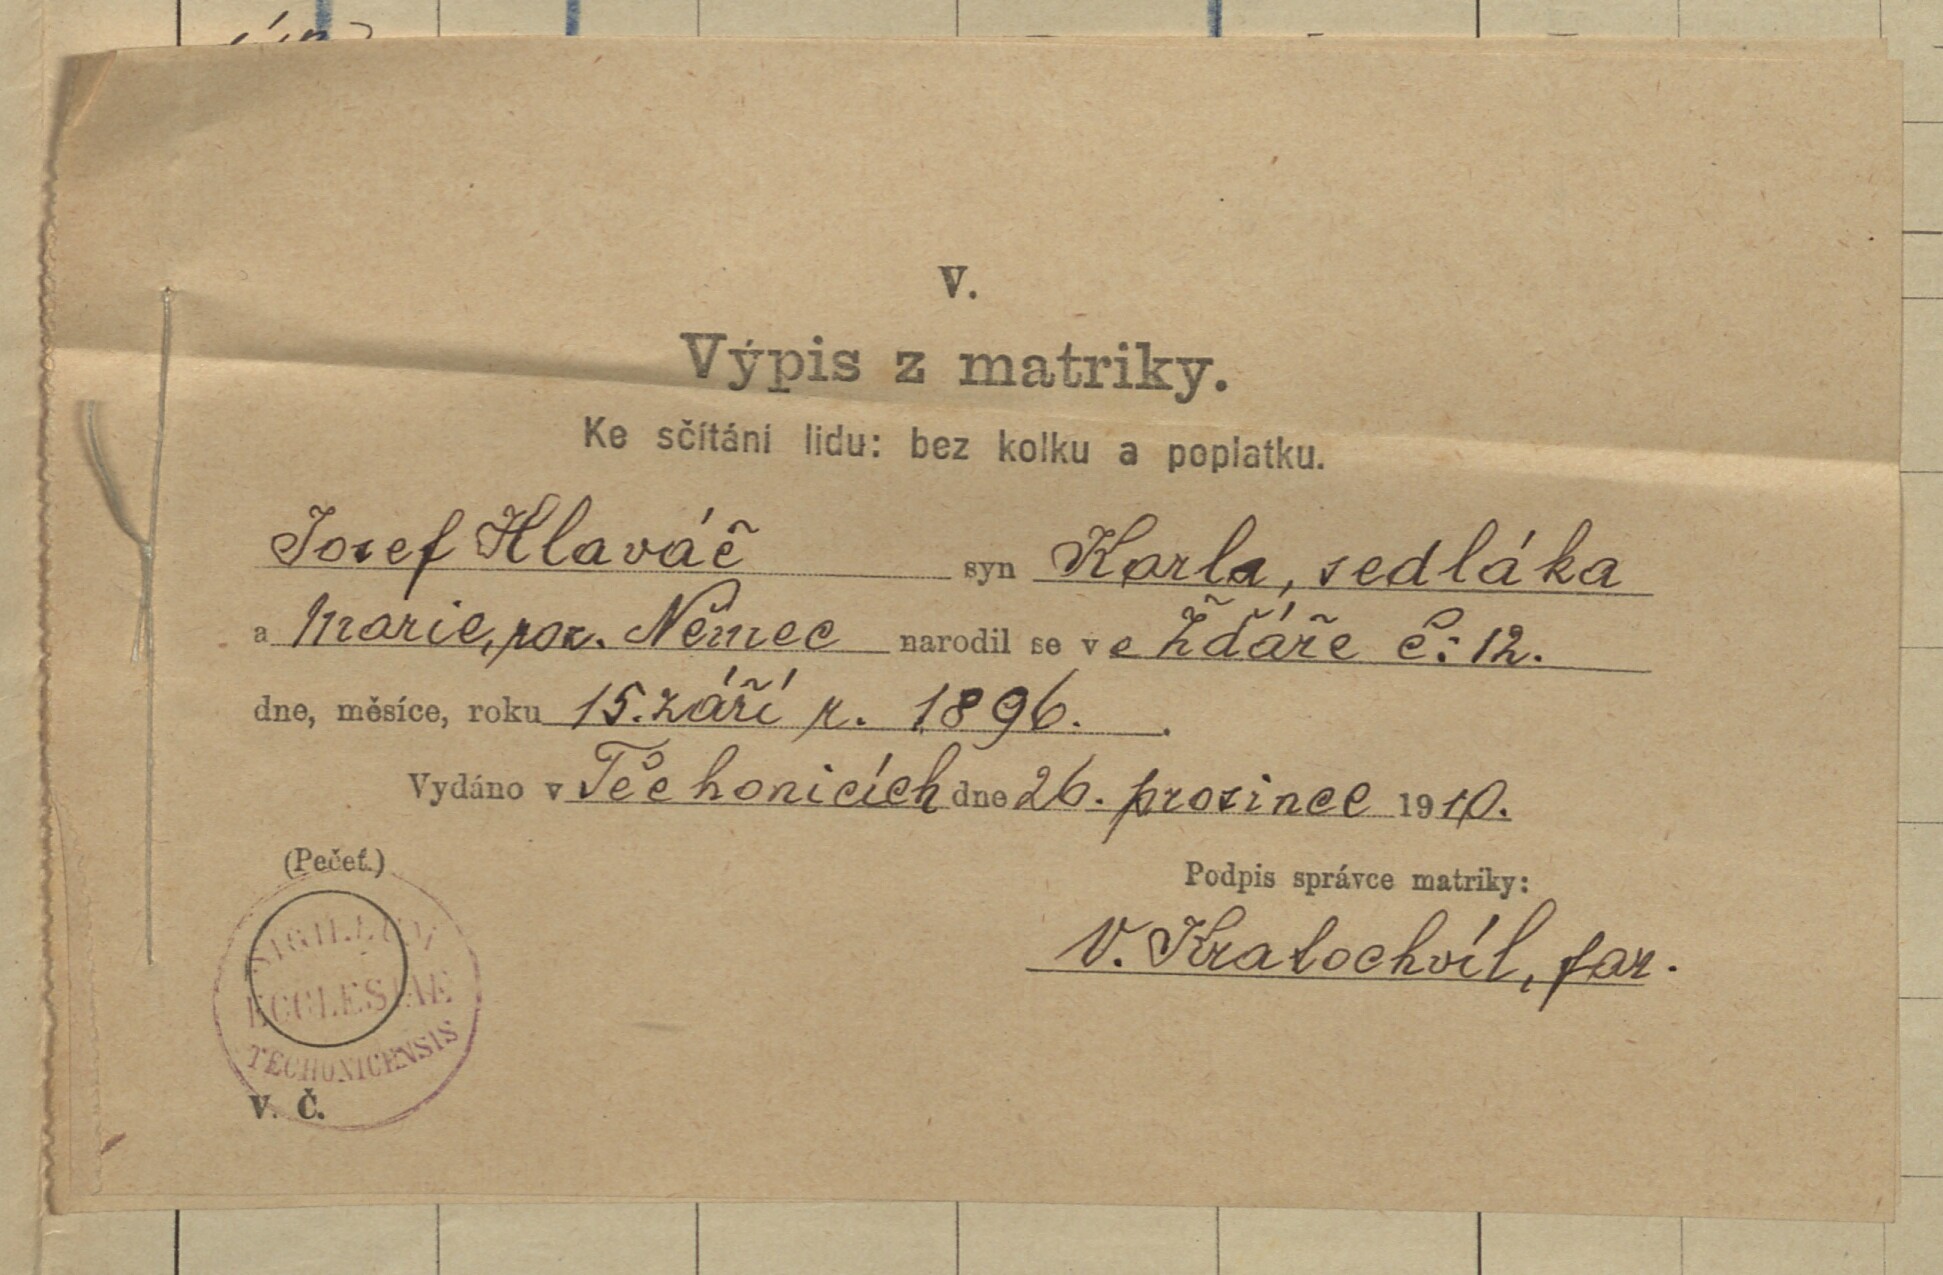 V.
Výpis z matriky.
Ke sčítání lidu: bez kolku a poplatku.
Josef Hlaváč syn Karla, sedláka
a Marie, roz. Němec narodil se ve Žďáře č: 12.
dne, měsíce, roku 15. září r. 1896.
Vydáno v Těchonicích dne 26. prosince 1910.
(Pečeť.)
Podpis správce matriky:
V. Kratochvíl, far.
SIGILLUM
ECCLESIAE
TECHONICENSIS
V. Č.